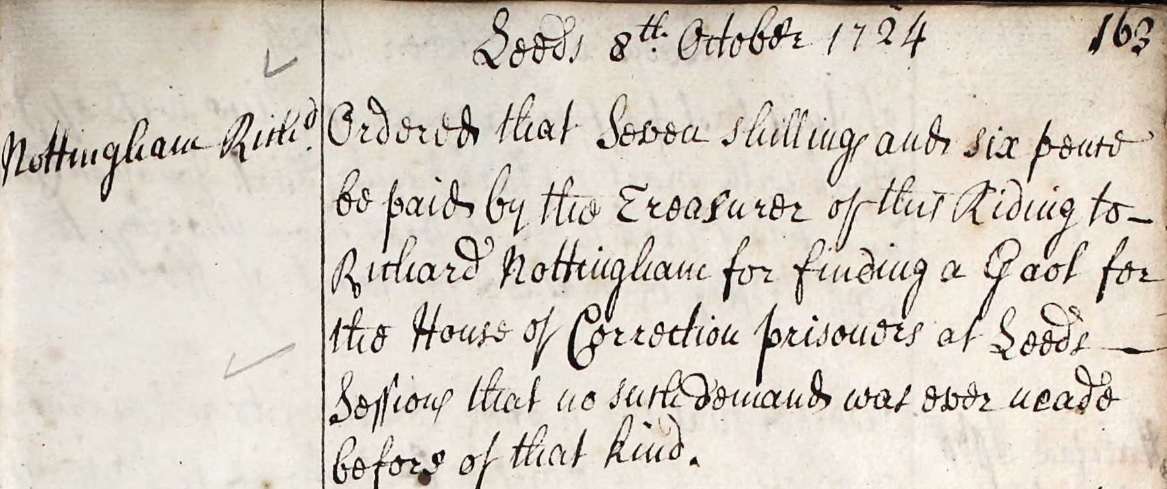 Leeds 8th. October 1724 163
Nottingham Rich.d
Ordered that Seven shillings and six pence
be paid by the Treasurer of this Riding to –
Richard Nottingham for finding a Gaol for
the House of Correction prisoners at Leeds —
Sessions that no such demand was ever made
before of that kind.